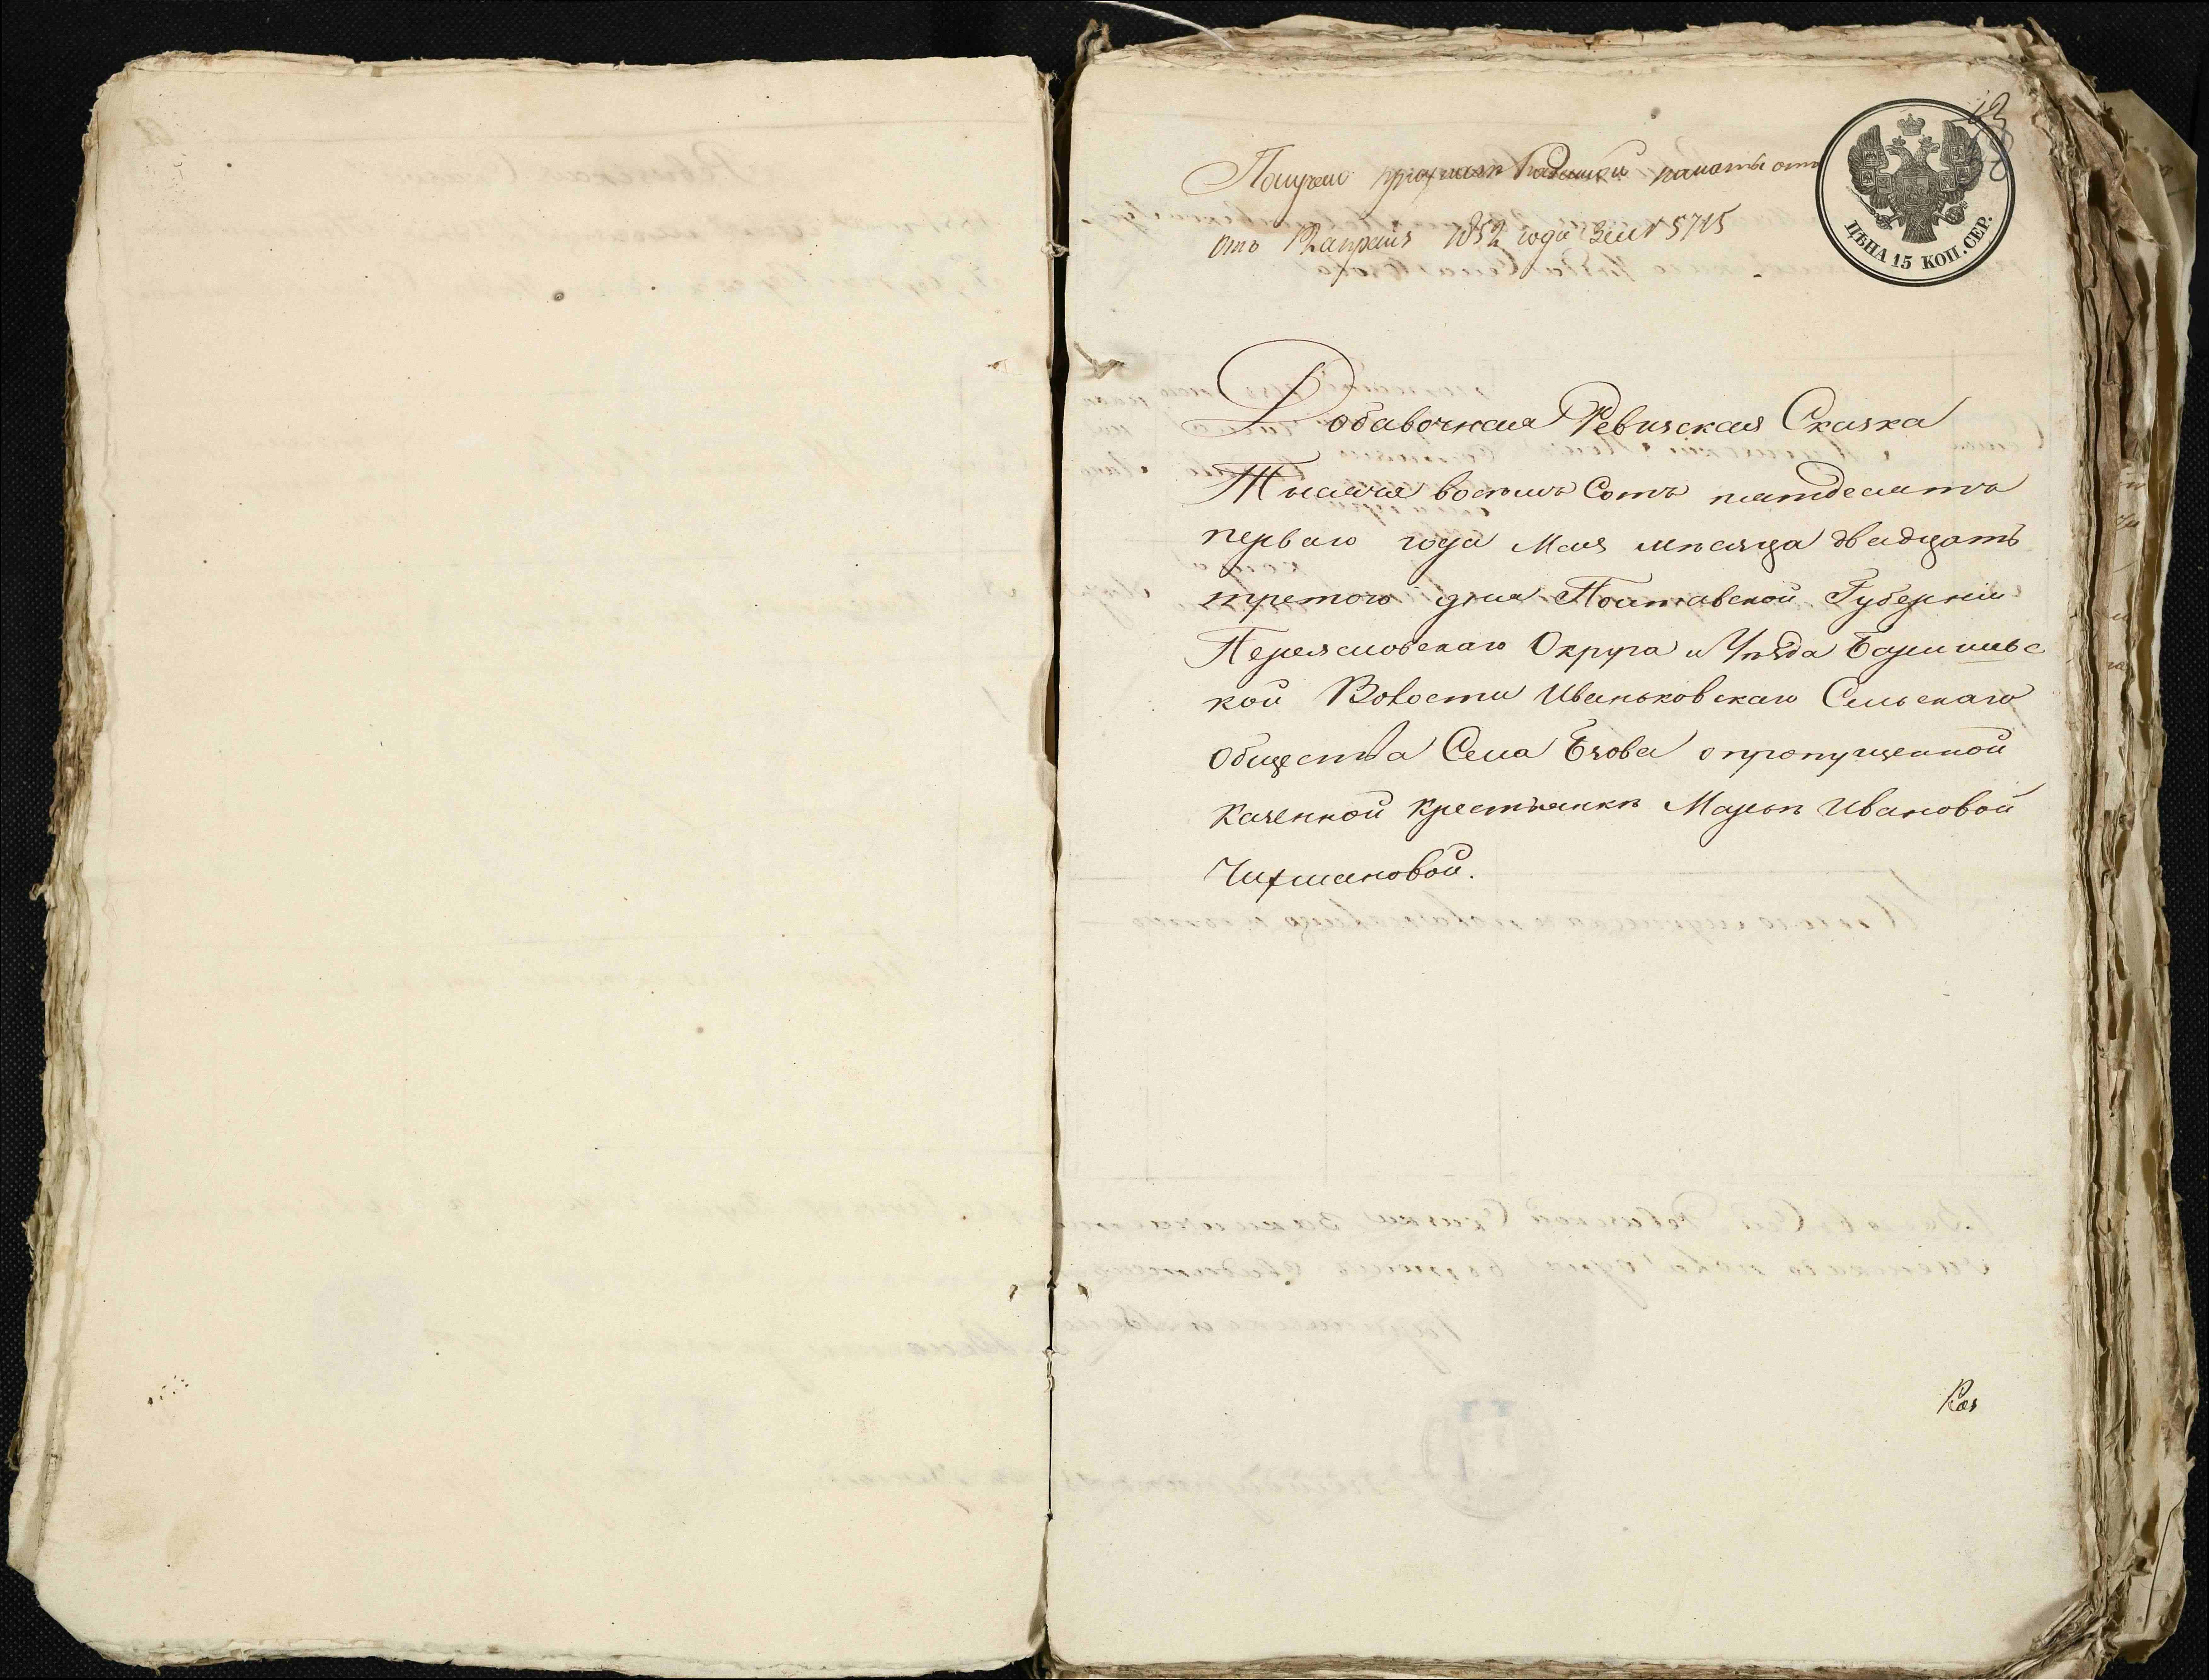 Получено при указе Казенной палаты отъ
отъ 12 апреля 1852 года за № 5715
ЦѢНА 15 КОП. СЕР.
Добавочная Ревизская Сказка
Тысяча восемь Сотъ пятдесятъ
перваго года Мая мѣсяца двадцать
третого дня Полтавской Губерніи
Переясловскаго Округа и Уѣзда Барышевс
кой Волости Иваньковскаго Сельскаго
Общества Села Езова о пропущенной
Казенной крестьянкѣ Марьѣ Ивановой
Чижмановой.
Каз